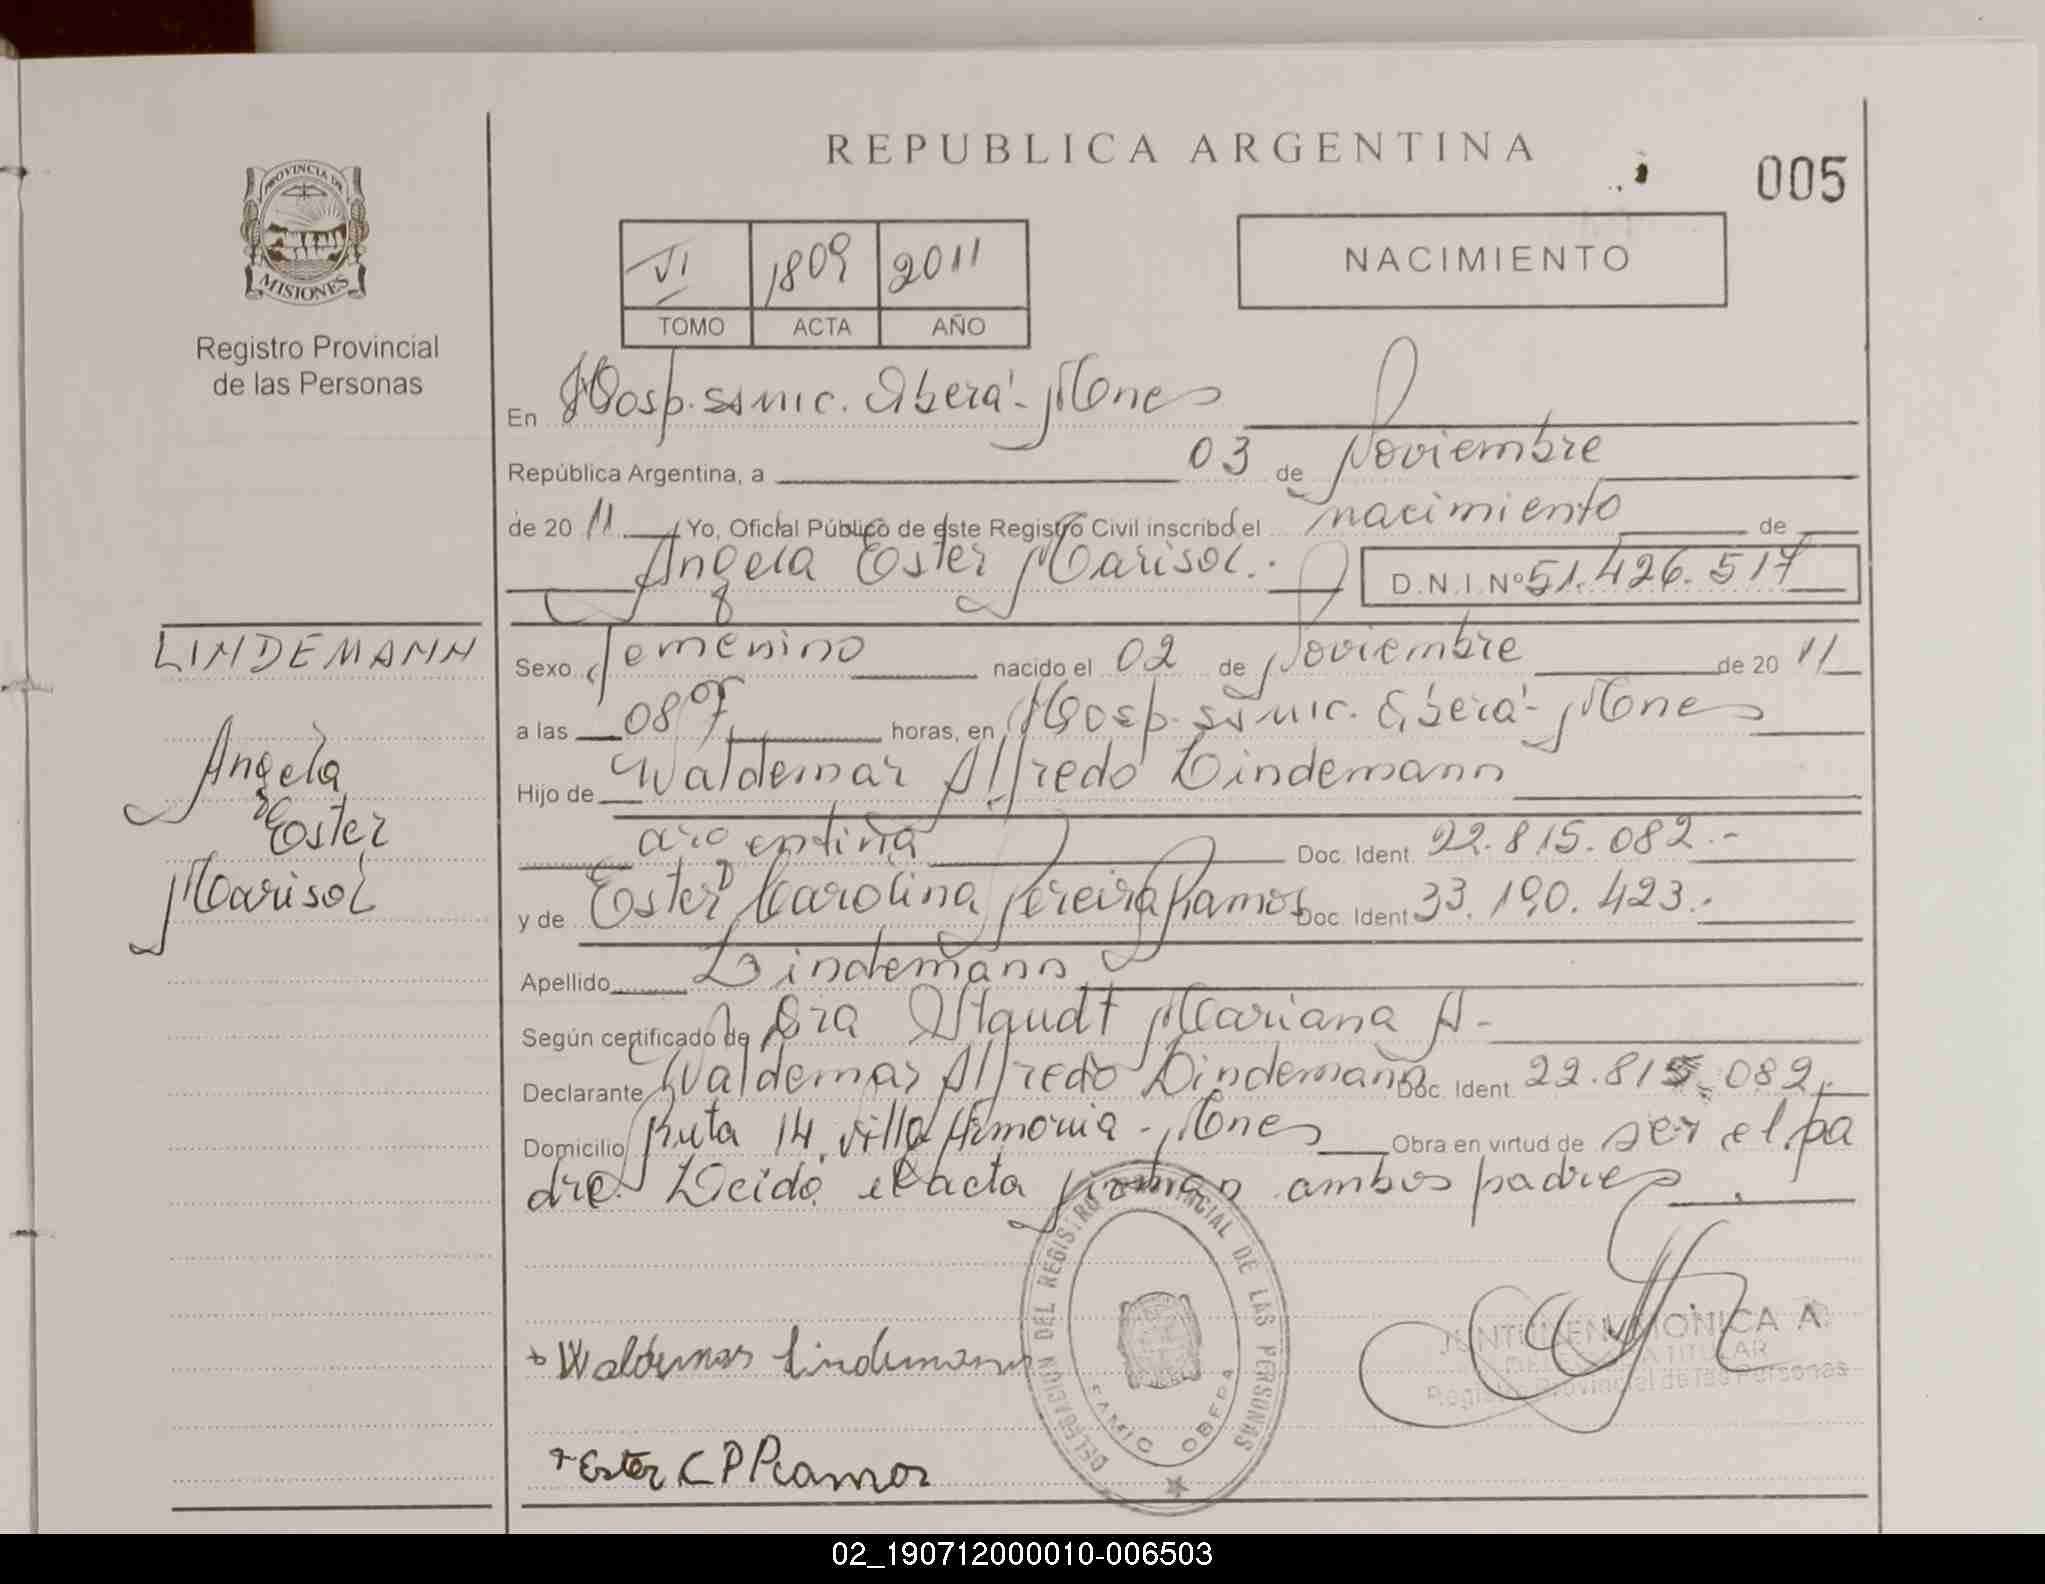 REPUBLICA ARGENTINA
005
PROVINCIA DE
MISIONES
Registro Provincial
de las Personas
VI 1809 2011
TOMO ACTA AÑO
NACIMIENTO
En Hosp. SAMIC. Oberá - Mnes
República Argentina, a 03 de Noviembre
de 20 11 Yo, Oficial Público de este Registro Civil inscribo el nacimiento de
Angela Ester Marisol.- D.N.I. Nº 51.426.517
LINDEMANN
Angela
Ester
Marisol
Sexo Femenino nacido el 02 de Noviembre de 20 11
a las 08 horas, en Hosp. SAMIC. Oberá - Mnes
Hijo de Waldemar Alfredo Lindemann
argentina Doc. Ident. 22.815.082.-
y de Ester Carolina Pereira Ramos Doc. Ident. 33.190.423.-
Apellido Lindemann
Según certificado de Dra Staudt Mariana A-
Declarante Waldemar Alfredo Lindemann Doc. Ident. 22.815.082.-
Domicilio Ruta 14, Villa Armonia - Mnes Obra en virtud de ser el pa
dre. Leida el acta firman ambos padres
DELEGACION DEL REGISTRO PROVINCIAL DE LAS PERSONAS
SAMIC OBERA
Waldemar Lindemann
MONICA A
TITULAR
Registro Provincial de las Personas
Ester C P Ramos
02_190712000010-006503